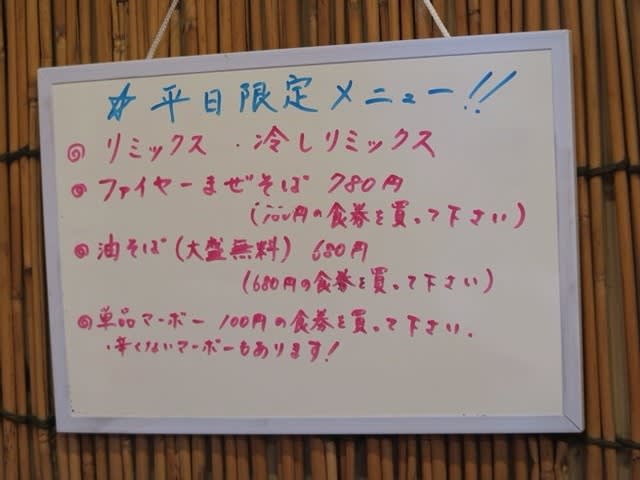 ☆ 平日限定メニュー!!
◎ リミックス ・ 冷しリミックス
◎ ファイヤーまぜそば 780円
円の食券を買って下さい)
◎ 油そば(大盛無料) 680円
(680円の食券を買って下さい)
◎ 単品マーボー 100円の食券を買って下さい.
・辛くないマーボーもあります!